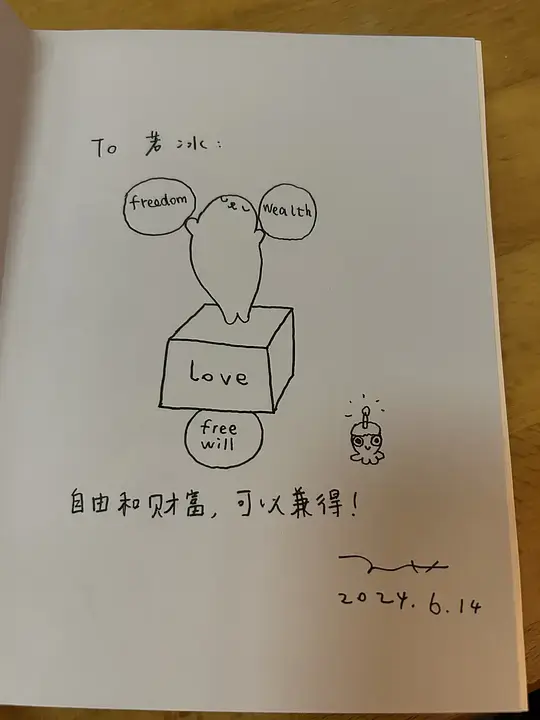 To 若冰：
freedom
wealth
love
free
will
自由和财富，可以兼得！
2024.6.14